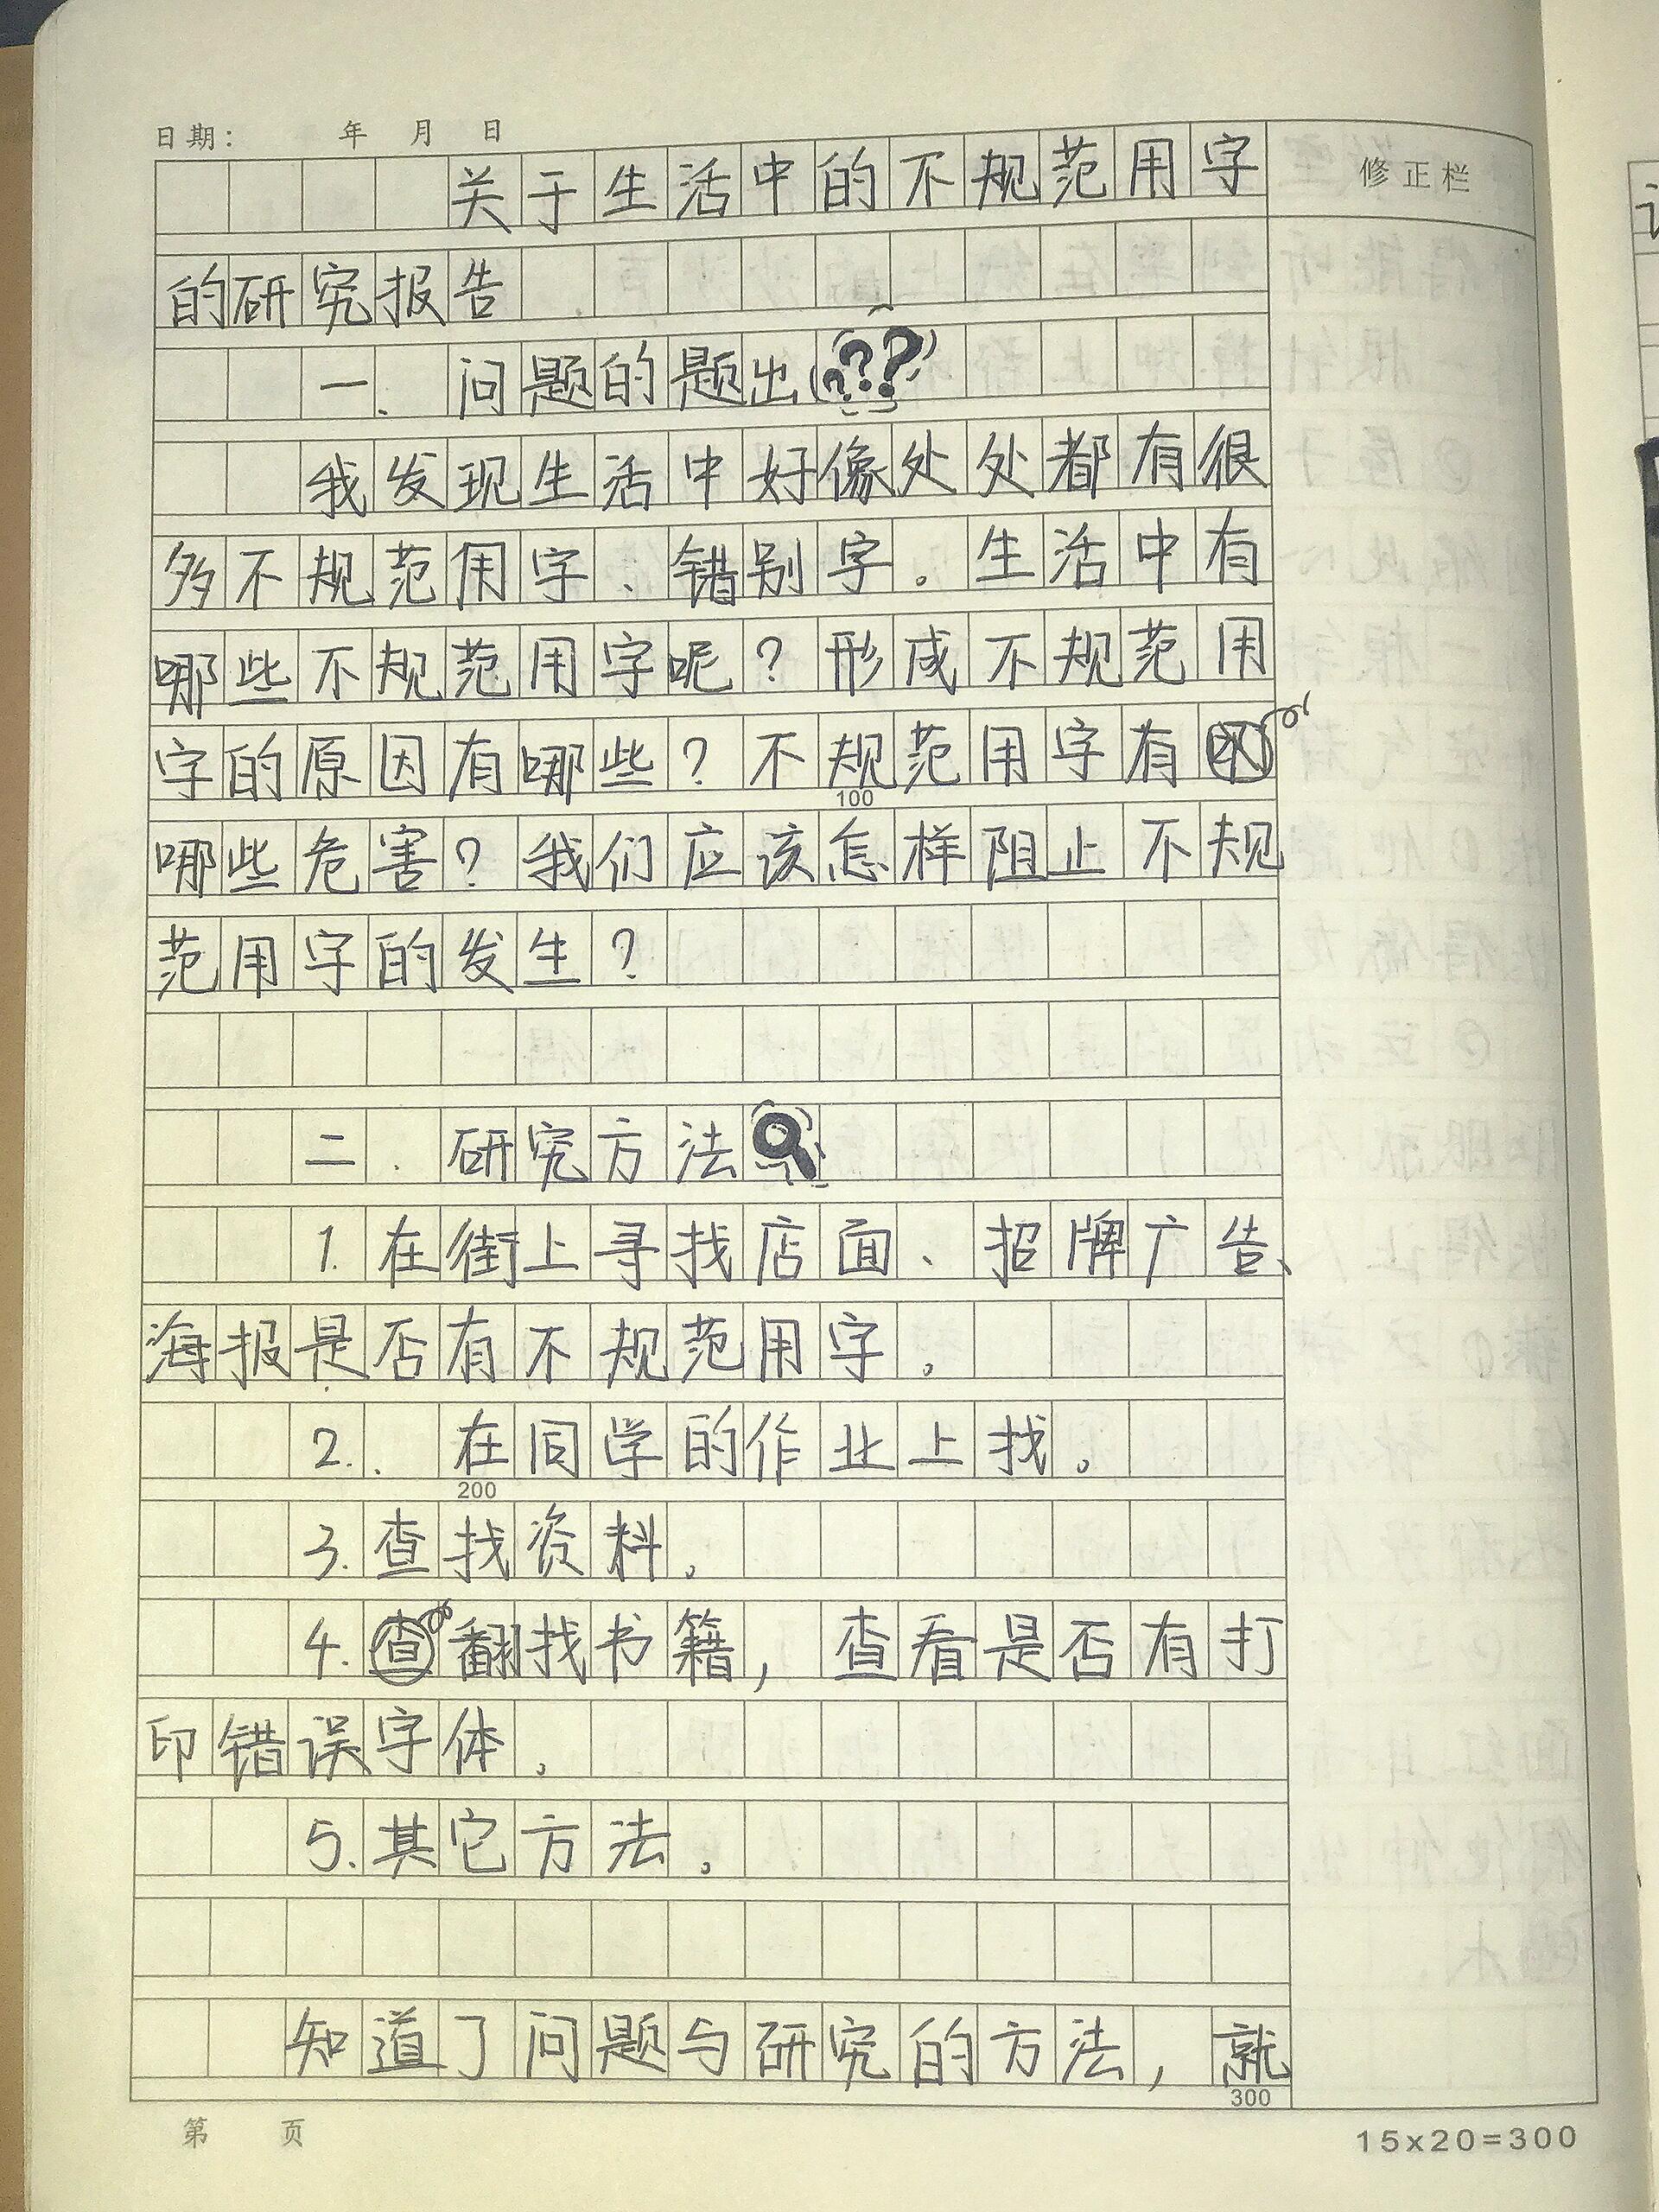 日期： 年 月 日
关于生活中的不规范用字
修正栏
的研究报告
一、问题的题出
我发现生活中好像处处都有很
多不规范用字、错别字。生活中有
哪些不规范用字呢？形成不规范用
字的原因有哪些？不规范用字有
100
哪些危害？我们应该怎样阻止不规
范用字的发生？
二、研究方法
1.在街上寻找店面、招牌广告、
海报是否有不规范用字。
2.、在同学的作业上找。
200
3.查找资料。
4.查翻找书籍，查看是否有打
印错误字体。
5.其它方法。
知道了问题与研究的方法，就
300
第 页
15x20=300